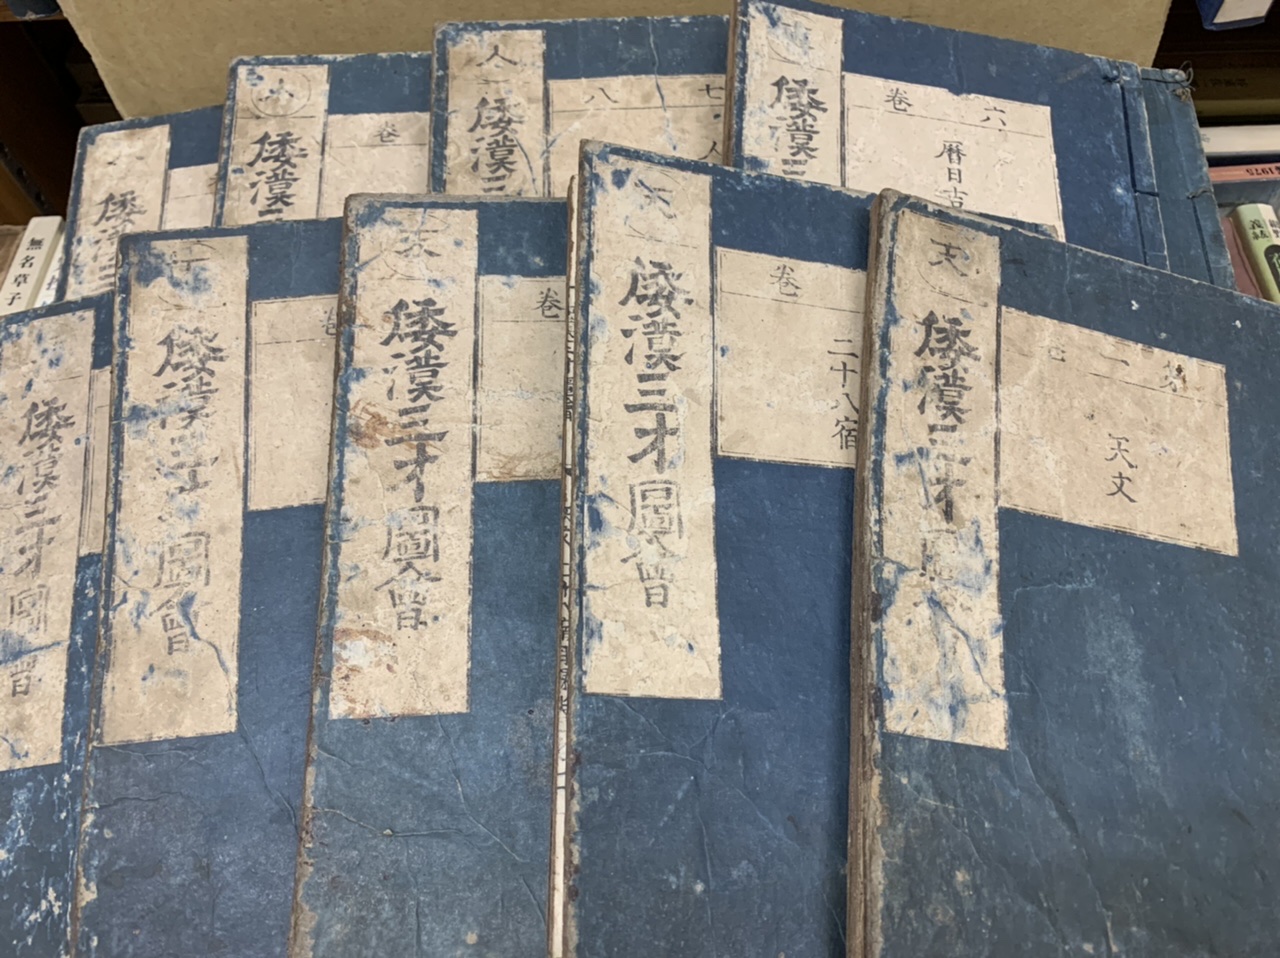 天
倭漢三才
巻一之
天文
天
倭漢三才圖會
巻
二十八宿
天
倭漢三才圖會
巻
倭漢三才圖會
巻
倭漢三才圖會
倭漢三
巻六
暦日吉
人
倭漢三
七八
人
倭漢三
巻
倭漢三
無名草子
1975